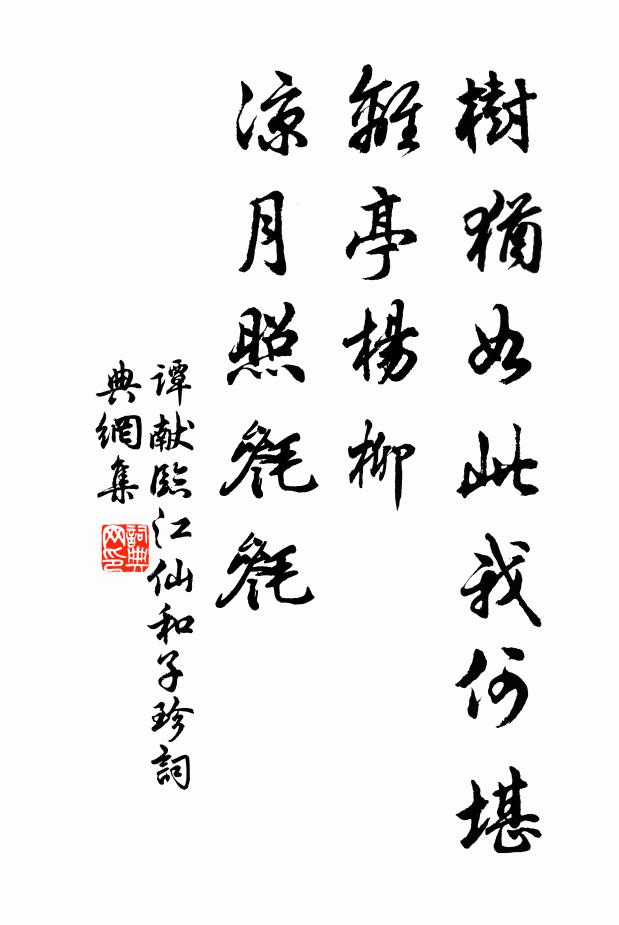 樹猶如此我何堪
離亭楊柳
涼月照毿毿
谭献臨江仙和子珍詞
典網集
詞典網印